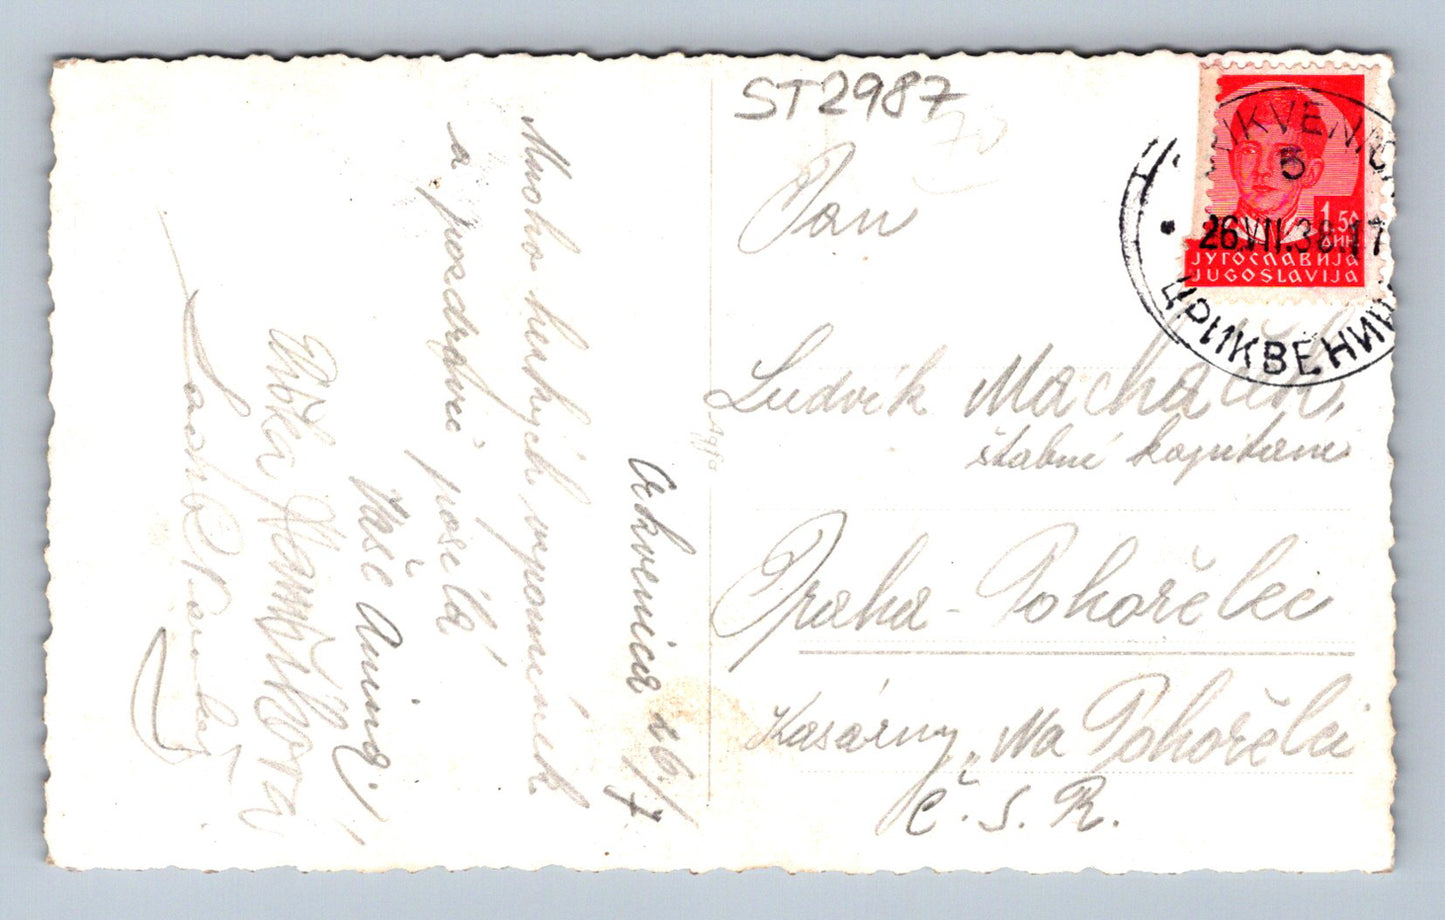 ST2987
Pan
Ludvík Macháček,
štábní kapitán
Praha - Pohořelec
Kasárny „Na Pohořelci
Č. S. R.
CRIKVENICA
5
26.VII.38.17
ЦРИКВЕНИЦА
1.50
ДИН.
ЈУГОСЛАВИЈА
JUGOSLAVIJA
Crkvenica 26/7.
Mnoho hezkých vzpomínek
a pozdravů posělá
Vaše Anina.